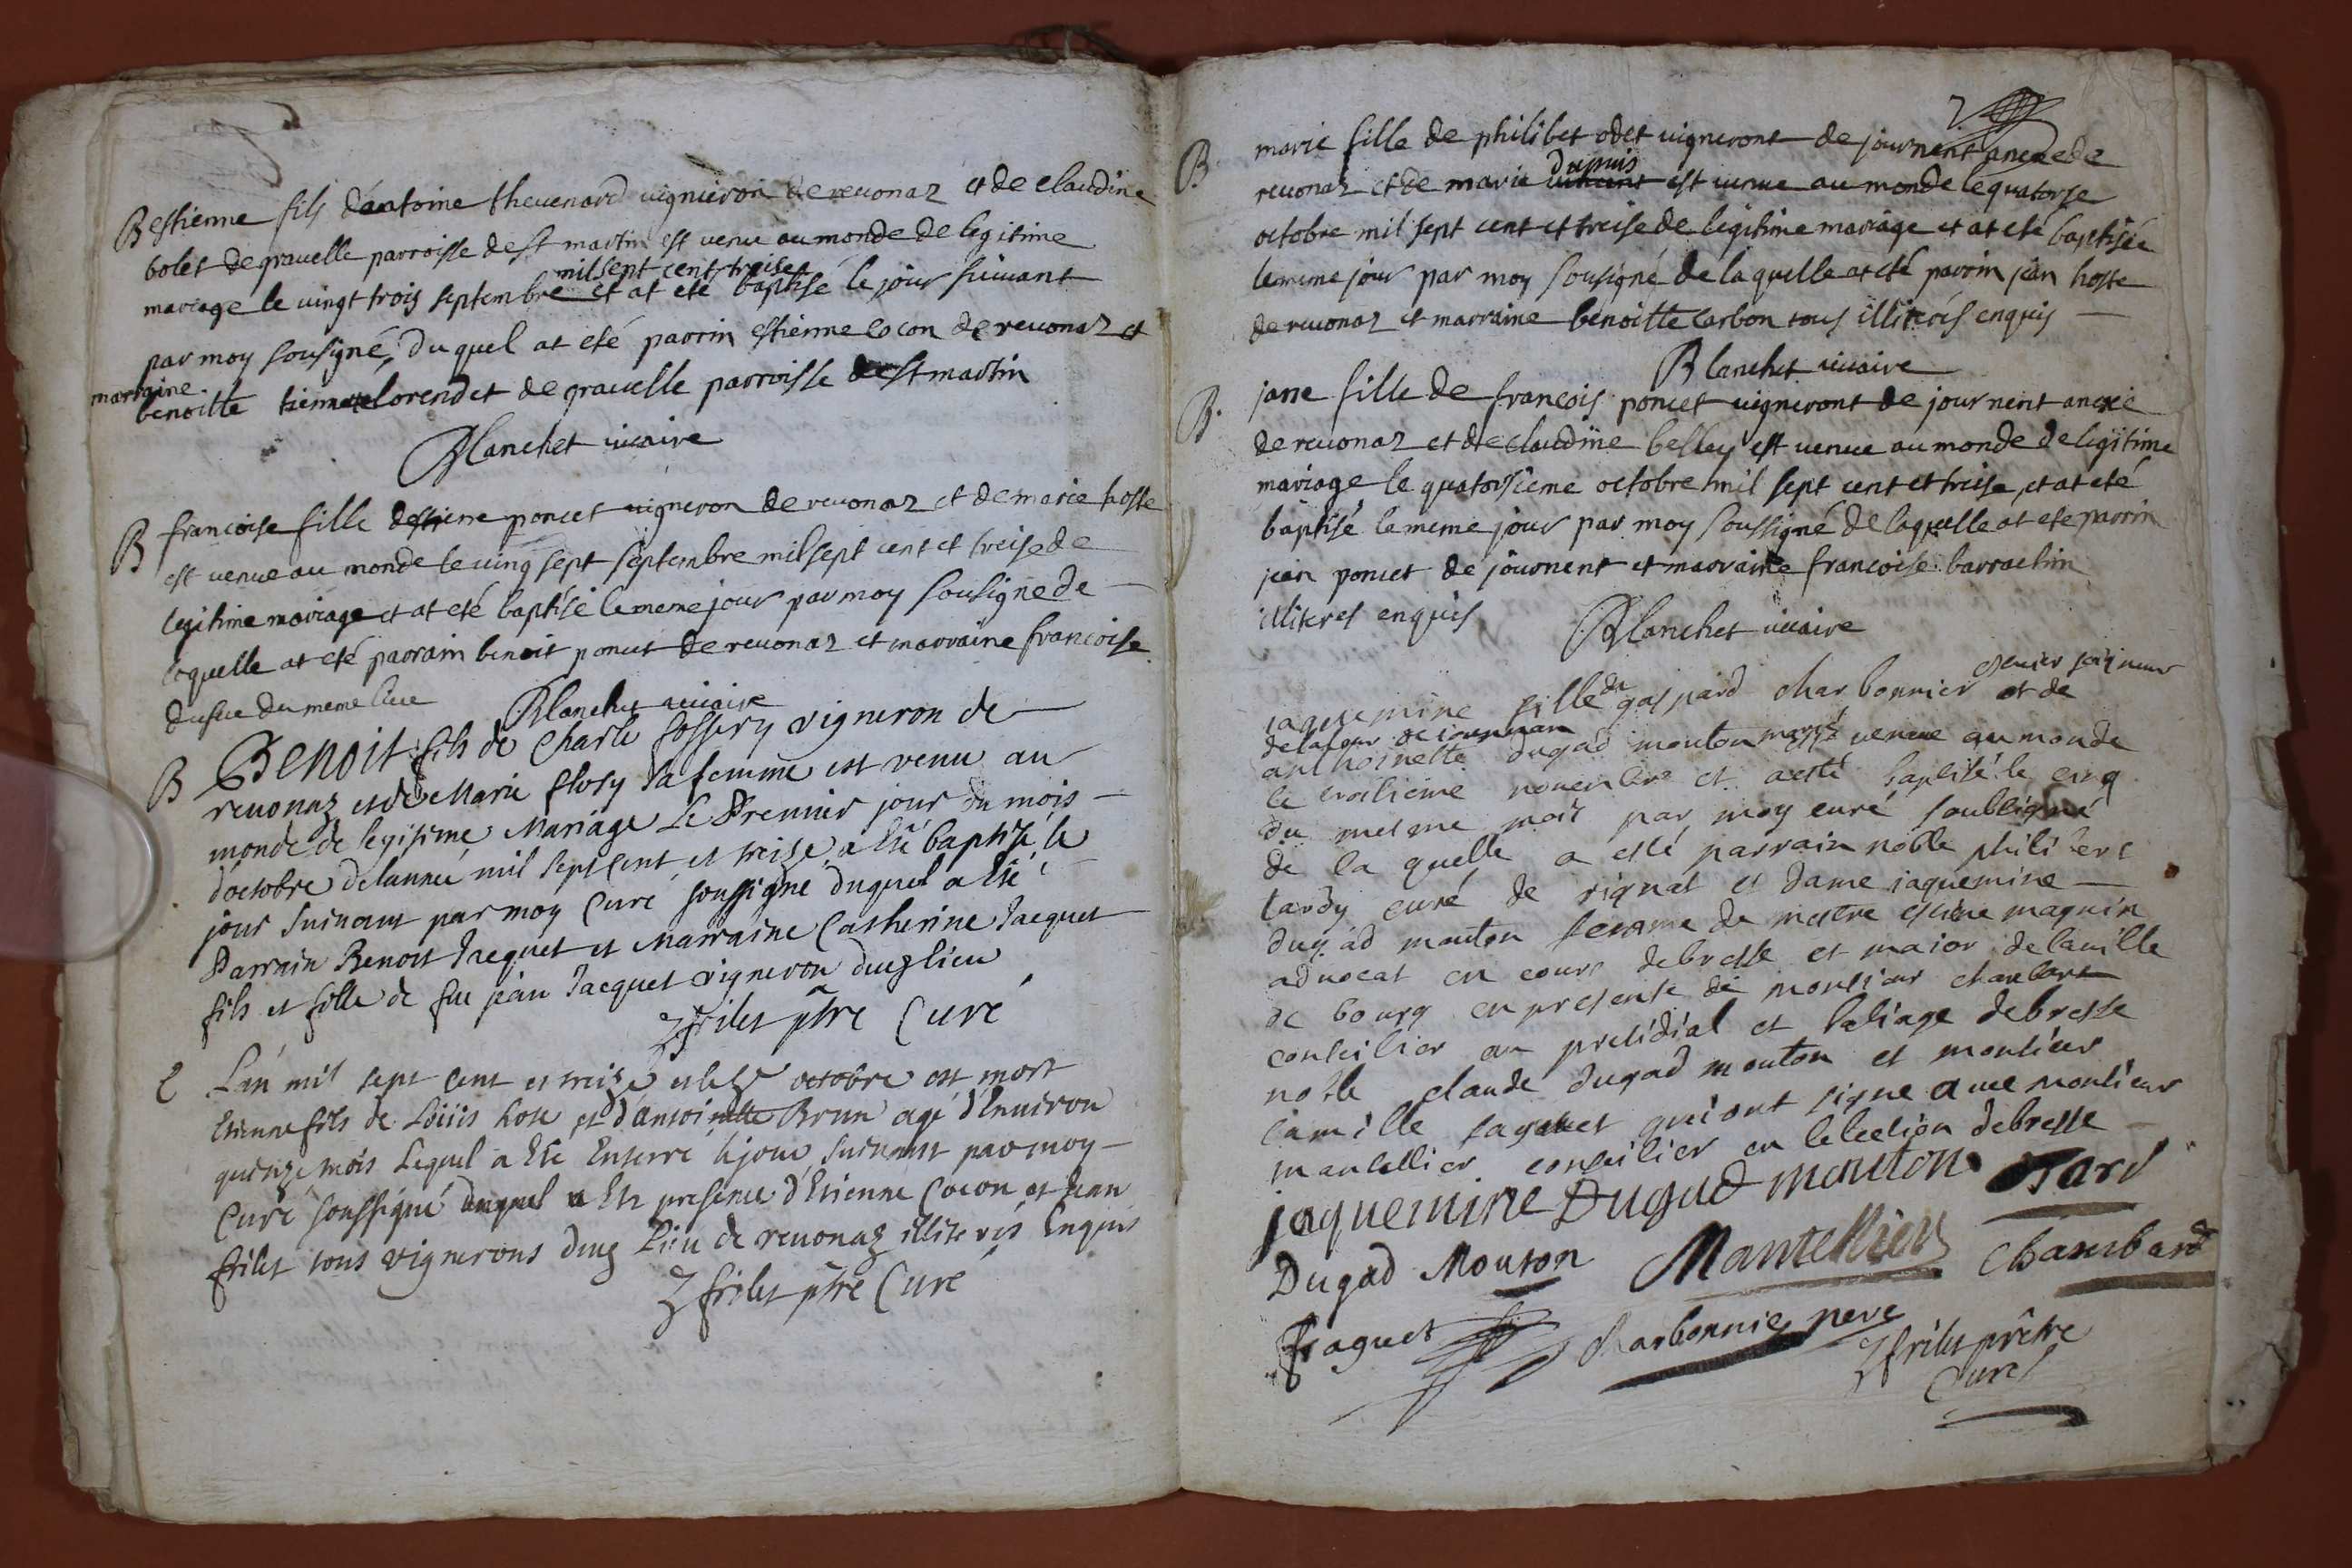 B estienne fils dantoine thevenard vigneron de revonaz et de claudine
bolet de gravelle parroisse de st martin est venu au monde de legitime
mil sept cent treise
mariage le vingt trois septembre et at eté baptisé le jour suivant
par moy sousigné, du quel at eté parrin estienne cocon de revonaz et
marraine
benoitte lorendet de gravelle parroisse de st martin
Blanchet vicaire
B francoise fille destiene poncet vigneron de revonaz et de marie hoste
est venue au monde le ving sept septembre mil sept cent et treise de
legitime mariage et at eté baptisé le meme jour par moy sousigné de
laquelle at eté parrain benoit poncet de revonaz et marraine francoise
du meme lieu
Blanchet vicaire
B Benoit fils de Charle fossery vigneron de
revonaz et de Marie flory sa femme est venu au
monde de legitime Mariage Le Premier jour du mois
d'octobre de lannée mil sept cent et treize a Eté baptizé le
jour suivant par moy Curé soussigné duquel a Eté
Parrain Benoit Jacquet et Marraine Catherine Jacquet
fils et fille de feu jean Jacquet vigneron dud lieu
frilet ptre Curé
L'an mil sept cent et treize et le octobre est mort
Etienne fils de Loüis hote et d'antoinette Brun agé d'Environ
quinze mois Lequel a Eté Enterré le jour suivant par moy
Curé soussigné en presence d'Etienne Cocon et Jean
frilet tous vignerons dud Lieu de revonaz illiterés Enquis
frilet ptre Curé
B marie fille de philibet odet vigneront de journent anexe de
dupuis
revonaz et de marie est venue au monde le quatorse
octobre mil sept cent et treise de legitime mariage et at eté baptisée
le meme jour par moy sousigné de laquelle at eté parrin jean hoste
de revonaz et marraine benoitte carbon tous illiterés enquis
Blanchet vicaire
B. jane fille de francois poncet vigneront de journent anexe
de revonaz et de claudine belley est venue au monde de legitime
mariage le quatorsieme octobre mil sept cent et treise, et at eté
baptisé le meme jour par moy soussigné de laquelle at eté parrin
jean poncet de journent et marraine francoise barrachin
illiteres enquis
Blanchet vicaire
escuier seigneur
iaquemine fille de gaspard charbonnier et de
de la tour
anthoinette dugad mouton venue au monde
le troisieme novembre et a esté baptisé le cinq
du mesme mois par moy curé soubsigné
de la quelle a esté parrain noble philibert
tardy curé de rignat et dame iaquemine
dugad mouton femme de mestre estiene maguin
advocat en cours de bresse et maior de la ville
de bourg en presente de monsieur chambart
conseilier au presidial et baliage de bresse
noble claude dugad mouton et monsieur
camille fayet qui ont signe avec monsieur
mantellier conseilier en lelection de bresse
jaquemine Dugad mouton Tardy
Dugad Mouton Mantellier Chambard
Charbonnier pere
frilet prêtre
Curé